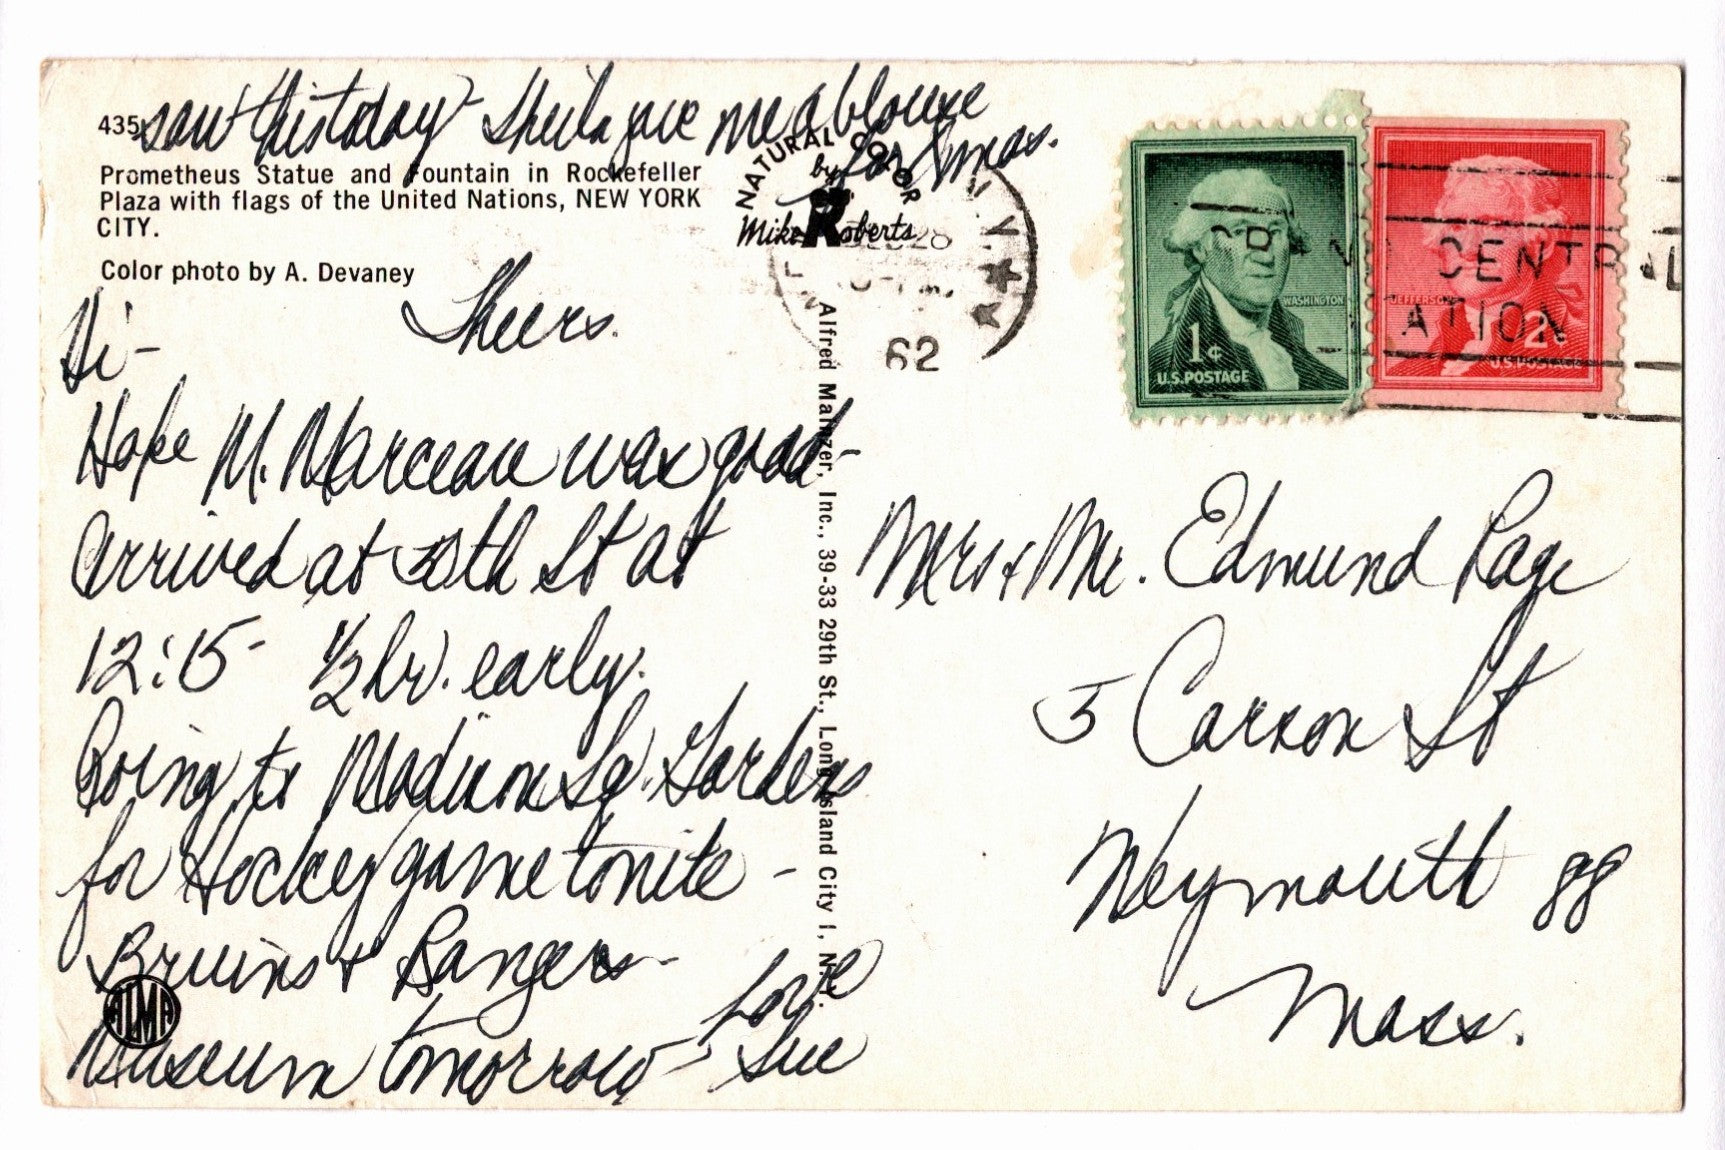 saw this today - Sheila gave me a blouse
for Xmas.
435
Prometheus Statue and Fountain in Rockefeller
Plaza with flags of the United Nations, NEW YORK
CITY.
Color photo by A. Devaney
NATURAL COLOR
by
Mike Roberts
Sheers.
Hi -
Hope M. Marceau was good -
Arrived at 50th St at
12:15 - 1/2 hr. early.
Going to Madison Sq. Gardens
for Hockey game tonite -
Bruins + Rangers -
Museum tomorrow -
Love
Sue
ALMA
Alfred Mainzer, Inc., 39-33 29th St., Long Island City 1, N.Y.
N.Y.
28
62
WASHINGTON
1¢
U.S. POSTAGE
JEFFERSON
2
U.S. POSTAGE
GRAND CENTRAL
STATION
Mrs + Mr. Edmund Page
5 Carson St
Weymouth 88
Mass.